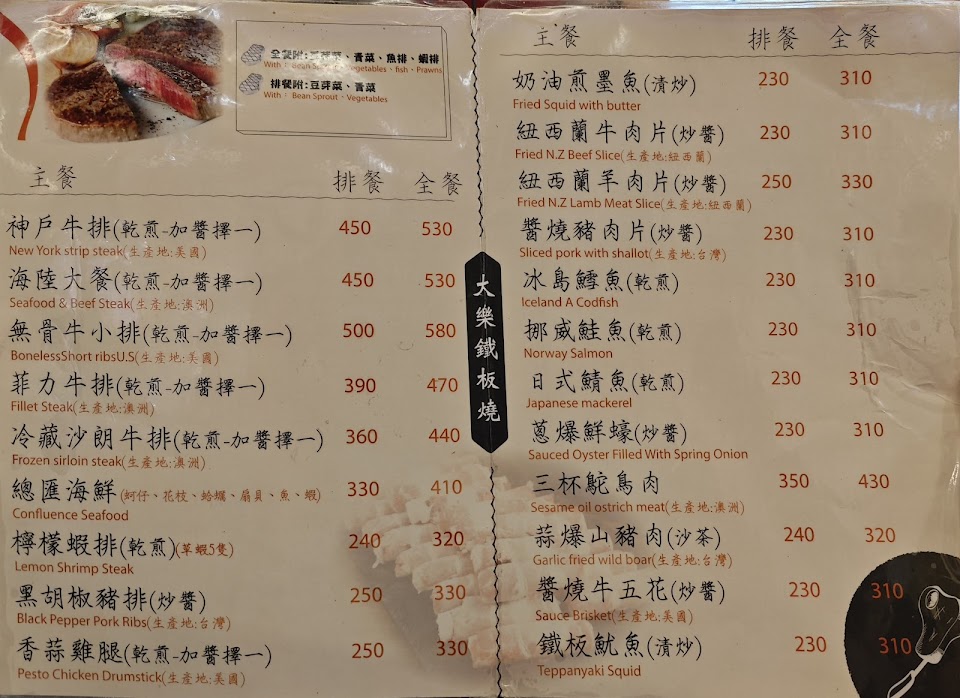 全餐附:豆芽菜、青菜、魚排、蝦排
With : Bean Sprout、Vegetables、fish、Prawns
排餐附:豆芽菜、青菜
With : Bean Sprout、Vegetables
主餐 排餐 全餐
神戶牛排(乾煎-加醬擇一) 450 530
New York strip steak(生產地:美國)
海陸大餐(乾煎-加醬擇一) 450 530
Seafood & Beef Steak(生產地:澳洲)
無骨牛小排(乾煎-加醬擇一) 500 580
BonelessShort ribsU.S(生產地:美國)
菲力牛排(乾煎-加醬擇一) 390 470
Fillet Steak(生產地:澳洲)
冷藏沙朗牛排(乾煎-加醬擇一) 360 440
Frozen sirloin steak(生產地:澳洲)
總匯海鮮(蚵仔、花枝、蛤蠣、扇貝、魚、蝦) 330 410
Confluence Seafood
檸檬蝦排(乾煎)(草蝦5隻) 240 320
Lemon Shrimp Steak
黑胡椒豬排(炒醬) 250 330
Black Pepper Pork Ribs(生產地:台灣)
香蒜雞腿(乾煎-加醬擇一) 250 330
Pesto Chicken Drumstick(生產地:美國)
大樂鐵板燒
主餐 排餐 全餐
奶油煎墨魚(清炒) 230 310
Fried Squid with butter
紐西蘭牛肉片(炒醬) 230 310
Fried N.Z Beef Slice(生產地:紐西蘭)
紐西蘭羊肉片(炒醬) 250 330
Fried N.Z Lamb Meat Slice(生產地:紐西蘭)
醬燒豬肉片(炒醬) 230 310
Sliced pork with shallot(生產地:台灣)
冰島鱈魚(乾煎) 230 310
Iceland A Codfish
挪威鮭魚(乾煎) 230 310
Norway Salmon
日式鯖魚(乾煎) 230 310
Japanese mackerel
蔥爆鮮蠔(炒醬) 230 310
Sauced Oyster Filled With Spring Onion
三杯鴕鳥肉 350 430
Sesame oil ostrich meat(生產地:澳洲)
蒜爆山豬肉(沙茶) 240 320
Garlic fried wild boar(生產地:台灣)
醬燒牛五花(炒醬) 230 310
Sauce Brisket(生產地:美國)
鐵板魷魚(清炒) 230 310
Teppanyaki Squid